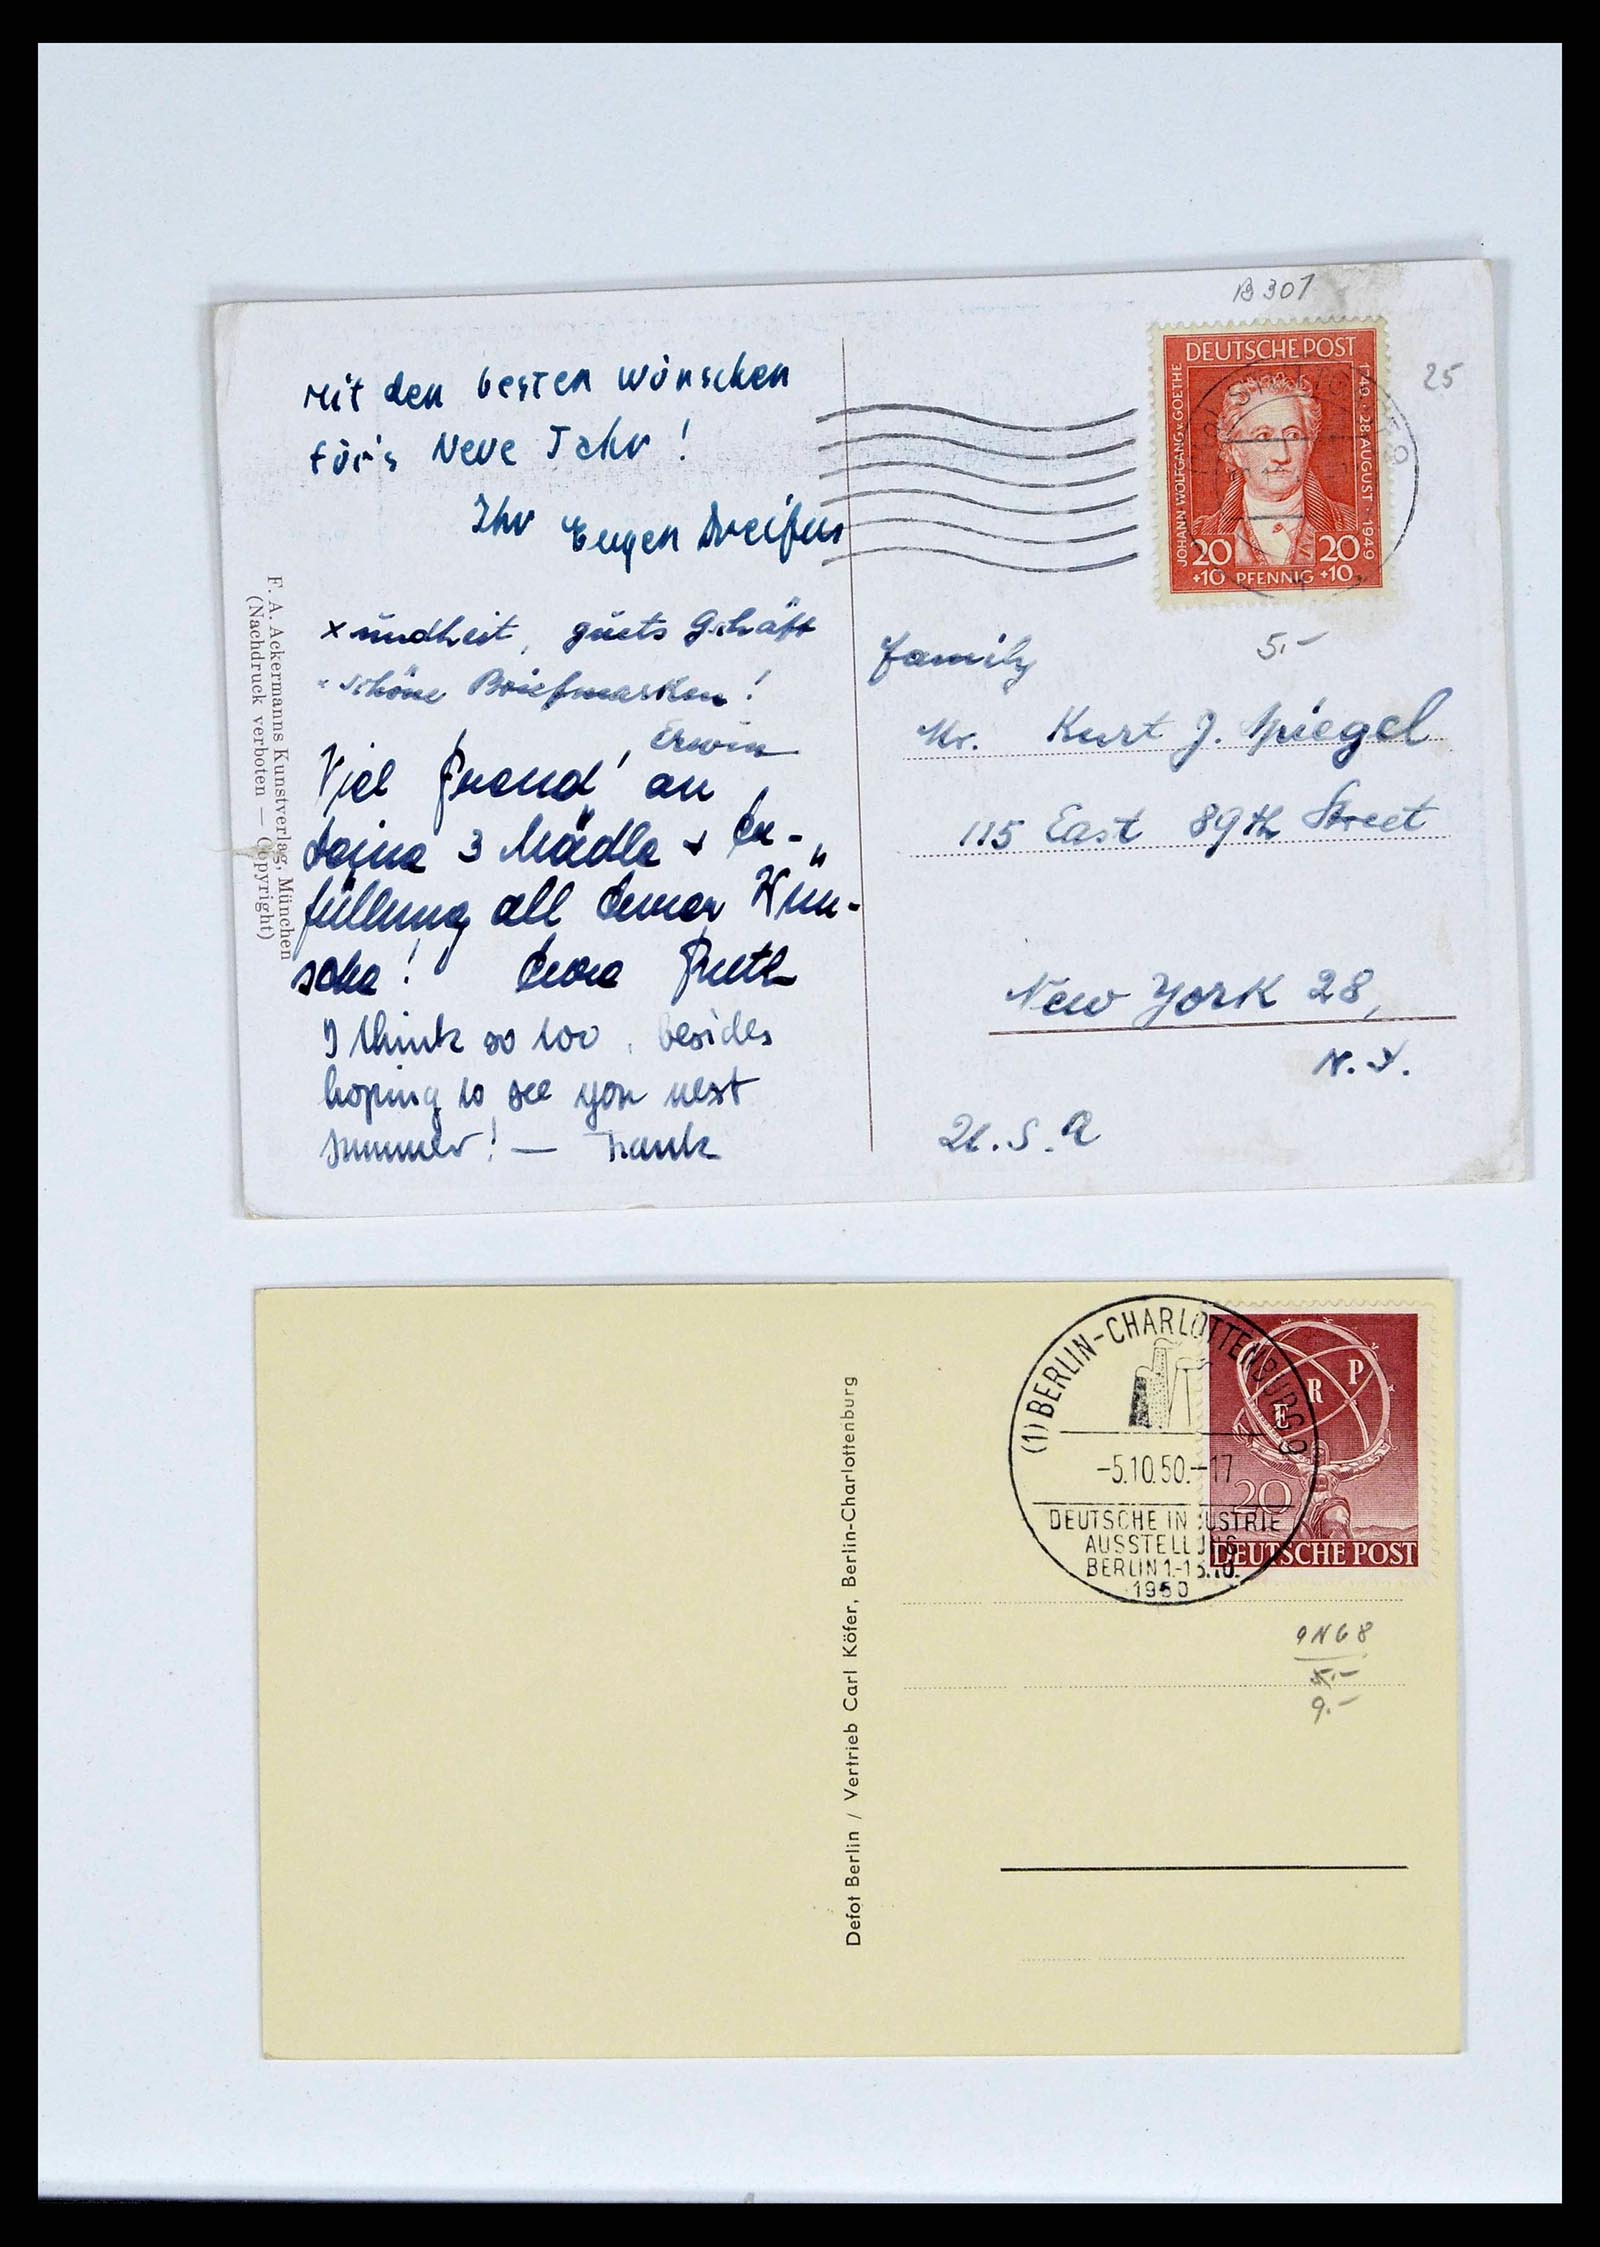 B 301
25
Mit den besten Wünschen
für's Neue Jahr!
Ihr Eugen Dreifus
x undheit, guets Gschäft
schöne Briefmarken!
Erwin
Viel Freud' an
Deine 3 Mädle + Er-
füllung all Deiner Wün-
sche! Deine Ruth
I think so too, besides
hoping to see you next
summer! — Frank
F. A. Ackermanns Kunstverlag, München
(Nachdruck verboten — Copyright)
DEUTSCHE POST
JOHANN WOLFGANG v. GOETHE
1749 · 28. AUGUST · 1949
20 20
+10 PFENNIG +10
5.-
Family
Mr. Kurt J. Spiegel
115 East 89th Street
New York 28,
N.Y.
U.S.A
(1) BERLIN-CHARLOTTENBURG 9
-5.10.50.-17
DEUTSCHE INDUSTRIE
AUSSTELLUNG
BERLIN 1.-15.10.
1950
E R P
20
DEUTSCHE POST
9N68
5.-
9.-
Defot Berlin / Vertrieb Carl Köfer, Berlin-Charlottenburg